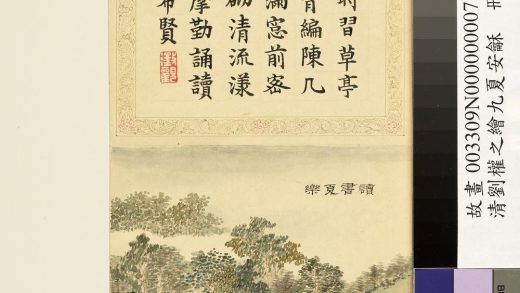 習草亭
編陳几
滿窓前密
清流漾
摩勤誦讀
希賢
讀書夏樂
故畫 003309N000000007
清劉權之繪九夏安龢